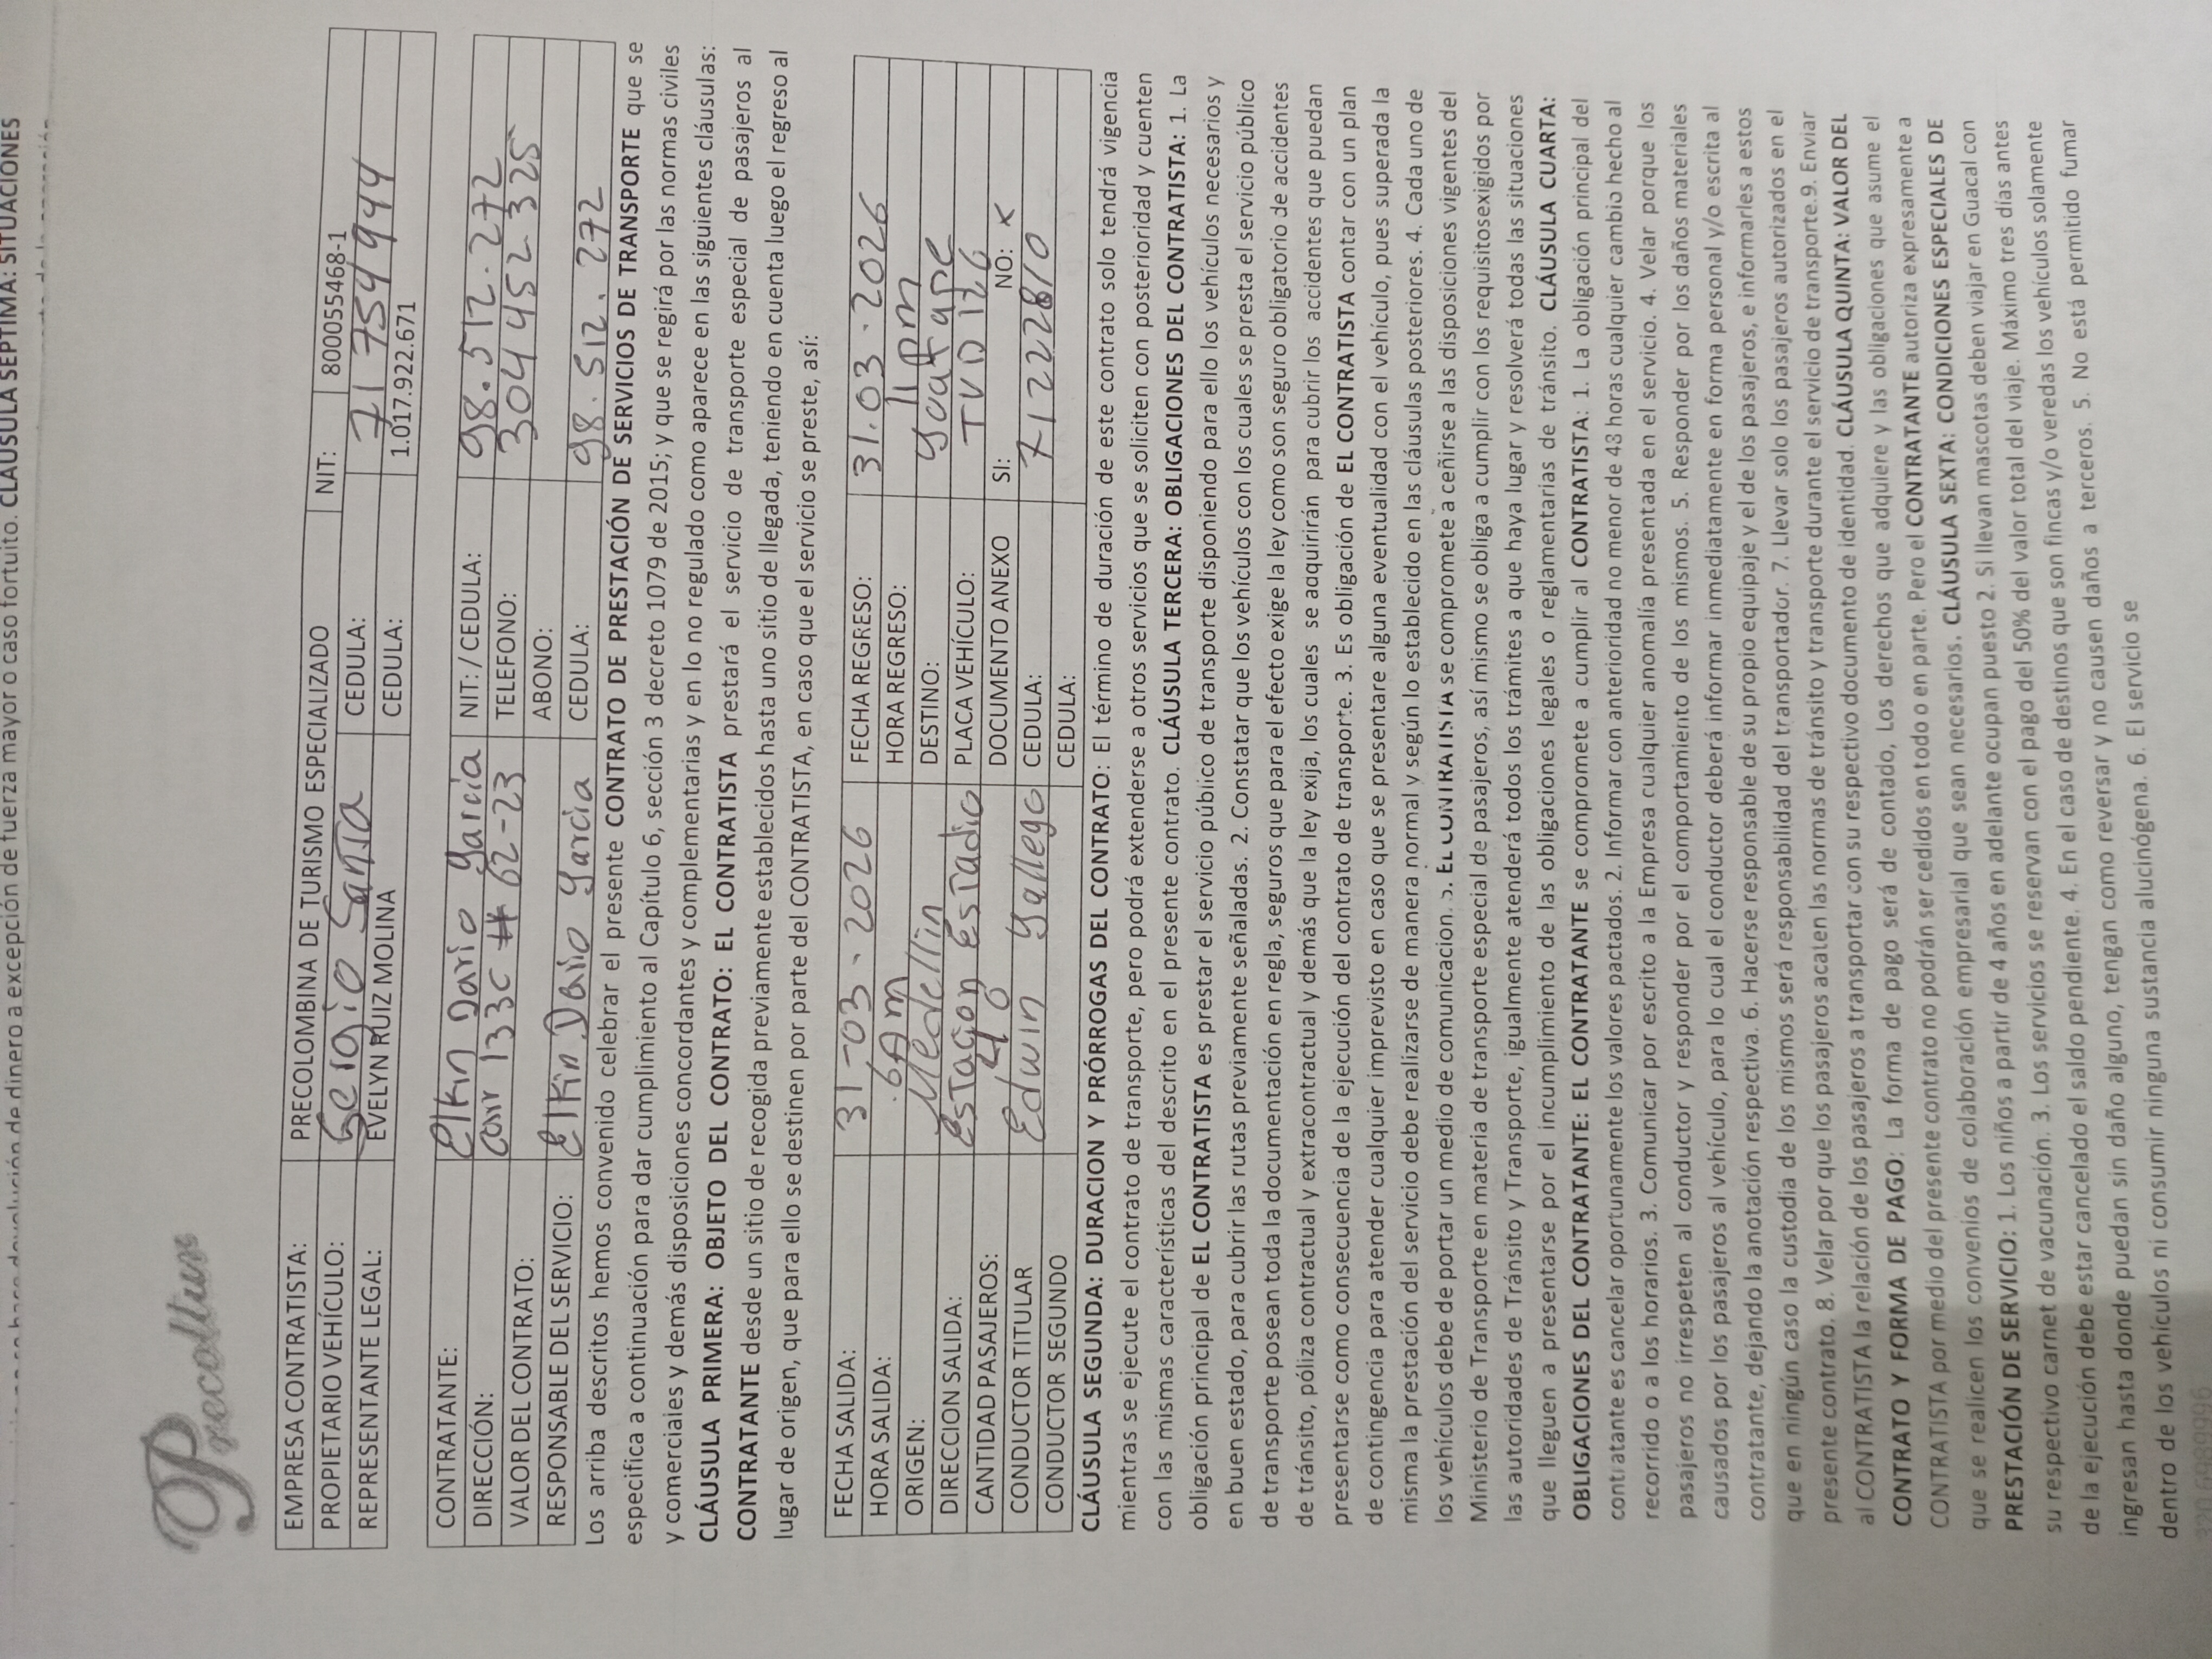 CLÁUSULA SEPTIMA: SITUACIONES
a excepción de fuerza mayor o caso fortuito.
Precoltur
EMPRESA CONTRATISTA: PRECOLOMBINA DE TURISMO ESPECIALIZADO NIT: 800055468-1
PROPIETARIO VEHÍCULO: Sergio Santa CEDULA: 71 754 944
REPRESENTANTE LEGAL: EVELYN RUIZ MOLINA CEDULA: 1.017.922.671
CONTRATANTE: Elkin Dario Garcia NIT: / CEDULA: 98.512.272
DIRECCIÓN: 133C # 62-23 TELEFONO: 304 452 325
VALOR DEL CONTRATO: ABONO:
RESPONSABLE DEL SERVICIO: Elkin Dario Garcia CEDULA: 98.512.272
Los arriba descritos hemos convenido celebrar el presente CONTRATO DE PRESTACIÓN DE SERVICIOS DE TRANSPORTE que se
especifica a continuación para dar cumplimiento al Capítulo 6, sección 3 decreto 1079 de 2015; y que se regirá por las normas civiles
y comerciales y demás disposiciones concordantes y complementarias y en lo no regulado como aparece en las siguientes cláusulas:
CLÁUSULA PRIMERA: OBJETO DEL CONTRATO: EL CONTRATISTA prestará el servicio de transporte especial de pasajeros al
CONTRATANTE desde un sitio de recogida previamente establecidos hasta uno sitio de llegada, teniendo en cuenta luego el regreso al
lugar de origen, que para ello se destinen por parte del CONTRATISTA, en caso que el servicio se preste, así:
FECHA SALIDA: 31-03-2026 FECHA REGRESO: 31.03.2026
HORA SALIDA: 6Am HORA REGRESO: 11pm
ORIGEN: Medellin DESTINO: Guatape
DIRECCION SALIDA: Estacion Estadio PLACA VEHÍCULO: TVD 126
CANTIDAD PASAJEROS: 40 DOCUMENTO ANEXO SI: NO: X
CONDUCTOR TITULAR Edwin Gallego CEDULA: 71222810
CONDUCTOR SEGUNDO CEDULA:
CLÁUSULA SEGUNDA: DURACION Y PRÓRROGAS DEL CONTRATO: El término de duración de este contrato solo tendrá vigencia
mientras se ejecute el contrato de transporte, pero podrá extenderse a otros servicios que se soliciten con posterioridad y cuenten
con las mismas características del descrito en el presente contrato. CLÁUSULA TERCERA: OBLIGACIONES DEL CONTRATISTA: 1. La
obligación principal de EL CONTRATISTA es prestar el servicio público de transporte disponiendo para ello los vehículos necesarios y
en buen estado, para cubrir las rutas previamente señaladas. 2. Constatar que los vehículos con los cuales se presta el servicio público
de transporte posean toda la documentación en regla, seguros que para el efecto exige la ley como son seguro obligatorio de accidentes
de tránsito, póliza contractual y extracontractual y demás que la ley exija, los cuales se adquirirán para cubrir los accidentes que puedan
presentarse como consecuencia de la ejecución del contrato de transporte. 3. Es obligación de EL CONTRATISTA contar con un plan
de contingencia para atender cualquier imprevisto en caso que se presentare alguna eventualidad con el vehículo, pues superada la
misma la prestación del servicio debe realizarse de manera normal y según lo establecido en las cláusulas posteriores. 4. Cada uno de
los vehículos debe de portar un medio de comunicacion. 5. EL CONTRATISTA se compromete a ceñirse a las disposiciones vigentes del
Ministerio de Transporte en materia de transporte especial de pasajeros, así mismo se obliga a cumplir con los requisitosexigidos por
las autoridades de Tránsito y Transporte, igualmente atenderá todos los trámites a que haya lugar y resolverá todas las situaciones
que lleguen a presentarse por el incumplimiento de las obligaciones legales o reglamentarias de tránsito. CLÁUSULA CUARTA:
OBLIGACIONES DEL CONTRATANTE: EL CONTRATANTE se compromete a cumplir al CONTRATISTA: 1. La obligación principal del
contratante es cancelar oportunamente los valores pactados. 2. Informar con anterioridad no menor de 48 horas cualquier cambio hecho al
recorrido o a los horarios. 3. Comunicar por escrito a la Empresa cualquier anomalía presentada en el servicio. 4. Velar porque los
pasajeros no irrespeten al conductor y responder por el comportamiento de los mismos. 5. Responder por los daños materiales
causados por los pasajeros al vehículo, para lo cual el conductor deberá informar inmediatamente en forma personal y/o escrita al
contratante, dejando la anotación respectiva. 6. Hacerse responsable de su propio equipaje y el de los pasajeros, e informarles a estos
que en ningún caso la custodia de los mismos será responsabilidad del transportador. 7. Llevar solo los pasajeros autorizados en el
presente contrato. 8. Velar por que los pasajeros acaten las normas de tránsito y transporte durante el servicio de transporte.9. Enviar
al CONTRATISTA la relación de los pasajeros a transportar con su respectivo documento de identidad. CLÁUSULA QUINTA: VALOR DEL
CONTRATO Y FORMA DE PAGO: La forma de pago será de contado, Los derechos que adquiere y las obligaciones que asume el
CONTRATISTA por medio del presente contrato no podrán ser cedidos en todo o en parte. Pero el CONTRATANTE autoriza expresamente a
que se realicen los convenios de colaboración empresarial que sean necesarios. CLÁUSULA SEXTA: CONDICIONES ESPECIALES DE
PRESTACIÓN DE SERVICIO: 1. Los niños a partir de 4 años en adelante ocupan puesto 2. Si llevan mascotas deben viajar en Guacal con
su respectivo carnet de vacunación. 3. Los servicios se reservan con el pago del 50% del valor total del viaje. Máximo tres días antes
de la ejecución debe estar cancelado el saldo pendiente. 4. En el caso de destinos que son fincas y/o veredas los vehículos solamente
ingresan hasta donde puedan sin daño alguno, tengan como reversar y no causen daños a terceros. 5. No está permitido fumar
dentro de los vehículos ni consumir ninguna sustancia alucinógena. 6. El servicio se